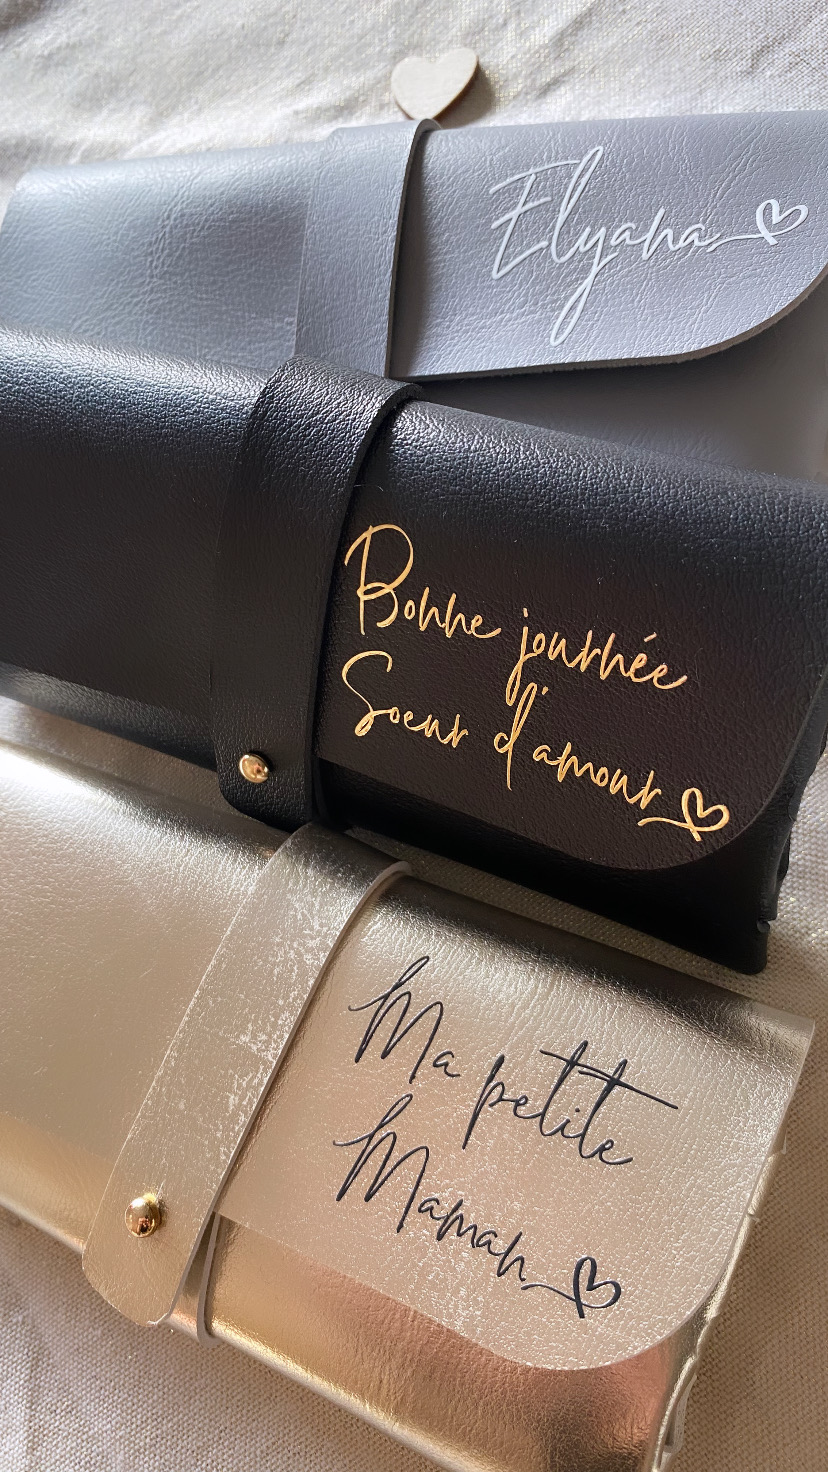 Elyana
Bonne journée
Soeur d'amour
Ma petite
Maman